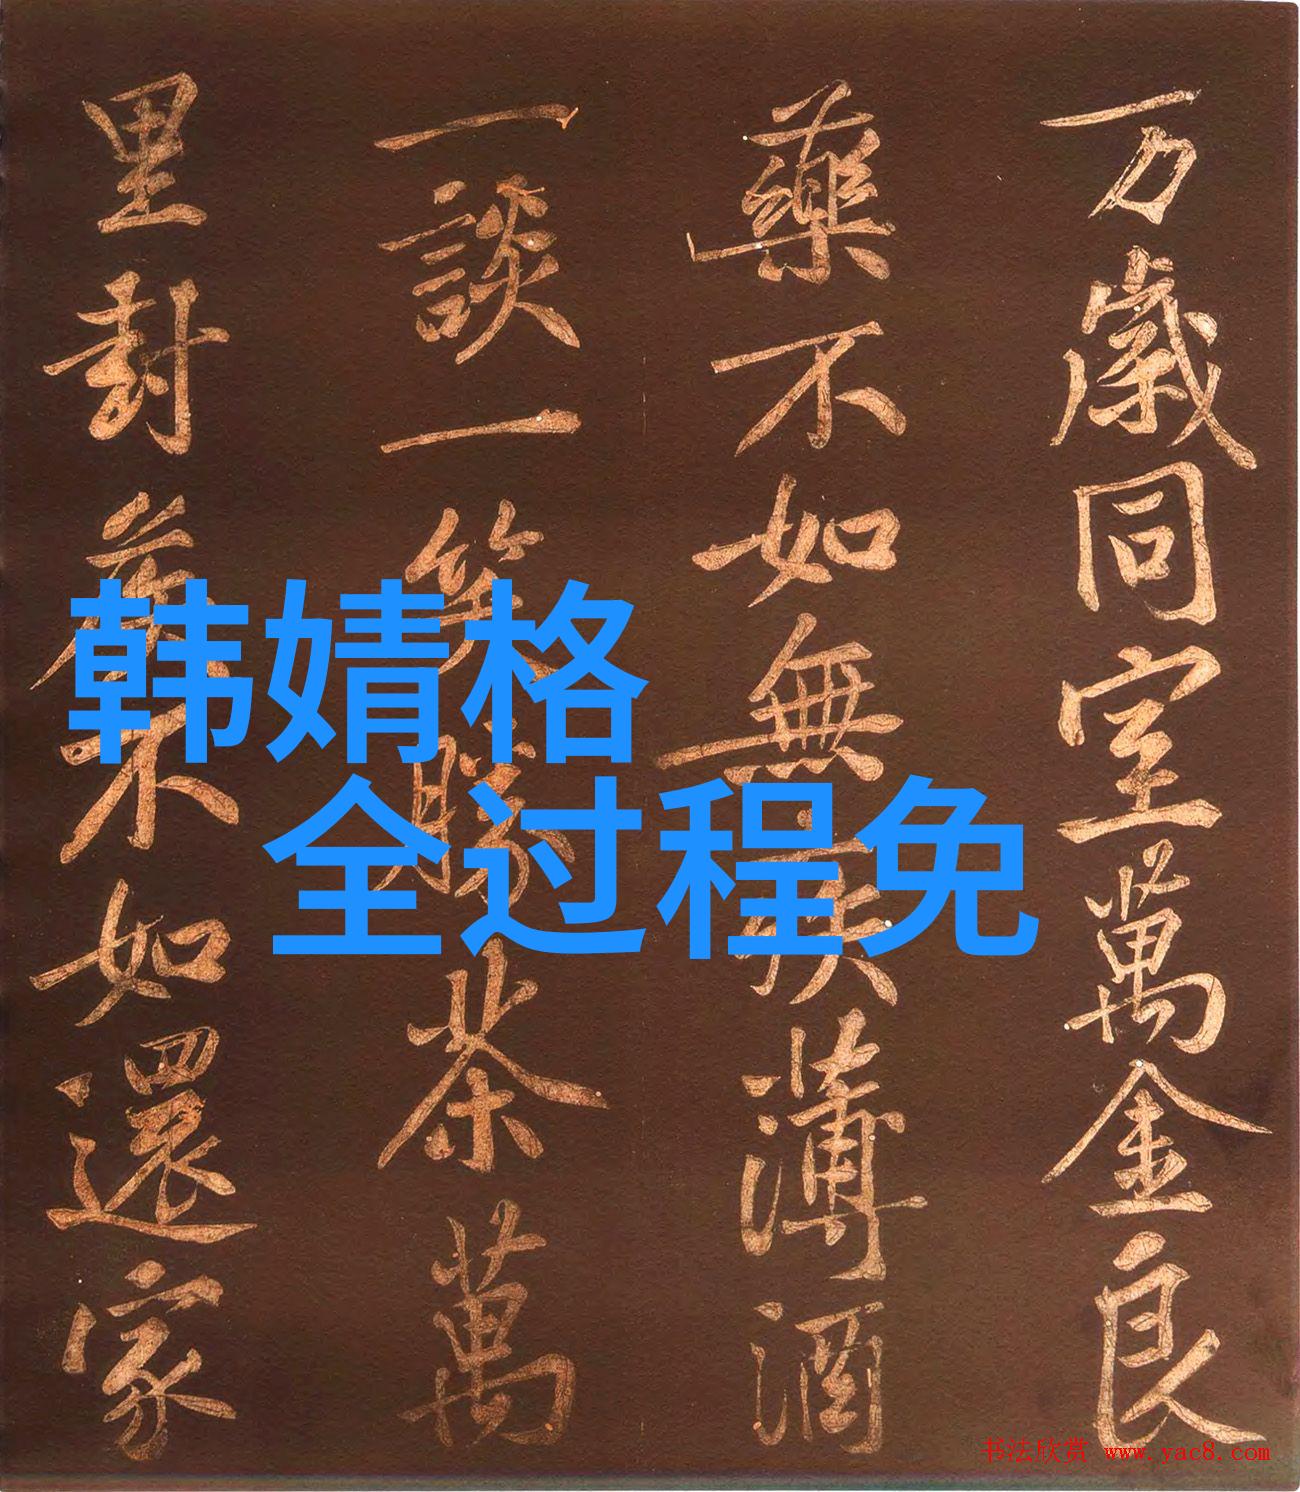 万歲同室萬金良
藥不如無疾薄酒
一談一笑勝茶萬
里封不如還家
韩婧格
全过程免
书法欣赏 www.yac8.com